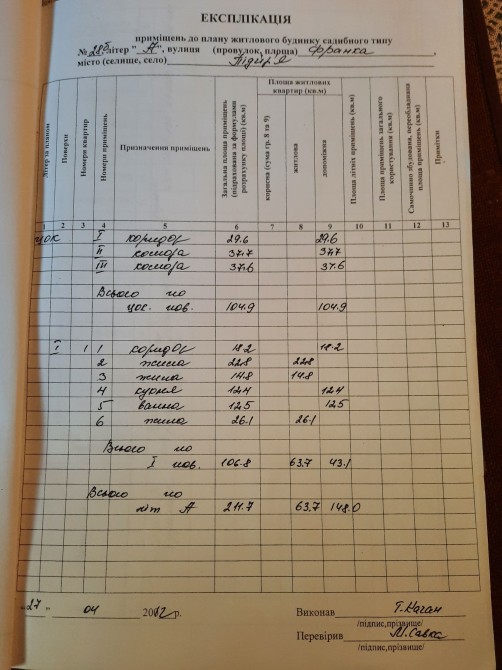 ЕКСПЛІКАЦІЯ
приміщень до плану житлового будинку садибного типу
№ 28б літер " А ", вулиця (провулок, площа) Франка ,
місто (селище, село) Підгір'я
Літер за планом
Поверхи
Номери квартир
Номери приміщень
Призначення приміщень
Загальна площа приміщень (підрахована за формулами розрахунку площі) (кв.м)
Площа житлових квартир (кв.м)
корисна (сума гр. 8 та 9)
житлова
допоміжна
Площа літніх приміщень (кв.м)
Площа приміщень загального користування (кв.м)
Самочинно збудована, переобладнана площа приміщень (кв.м)
Примітки
1 2 3 4 5 6 7 8 9 10 11 12 13
цок I коридор 29.6 29.6
II комора 37.7 37.7
III комора 37.6 37.6
Всього по
цок. пов. 104.9 104.9
I 1 1 коридор 18.2 18.2
2 жила 22.8 22.8
3 жила 14.8 14.8
4 кухня 12.4 12.4
5 ванна 12.5 12.5
6 жила 26.1 26.1
Всього по
I пов. 106.8 63.7 43.1
Всього по
літ А 211.7 63.7 148.0
"27" 04 2012 р.
Виконав Т.Каган
/підпис,прізвище/
Перевірив М.Савка
/підпис,прізвище/